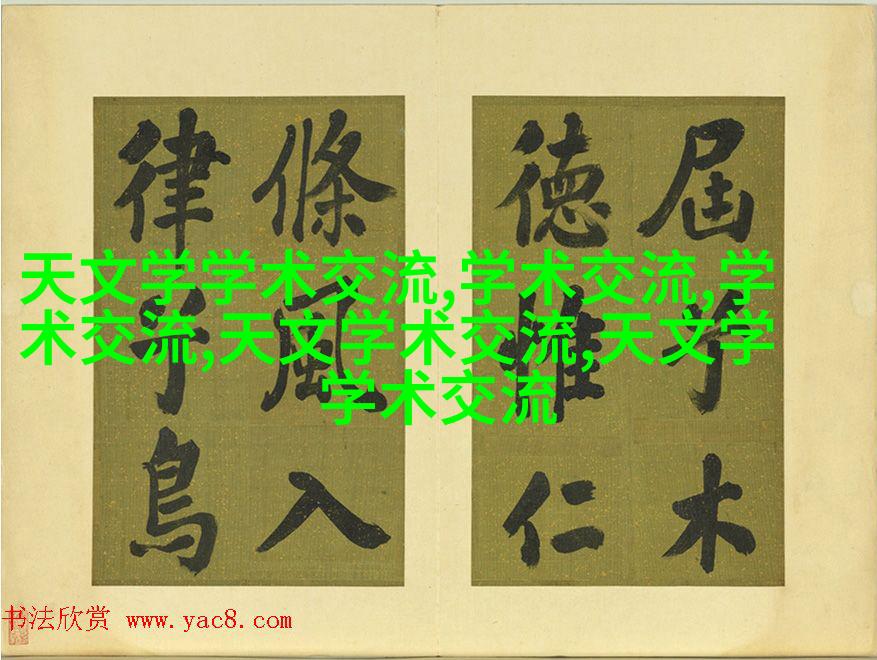 屆予木
德惟仁
條風入
律予鳥
天文学学术交流,学术交流,学
术交流,天文学术交流,天文学
学术交流
书法欣赏 www.yac8.com